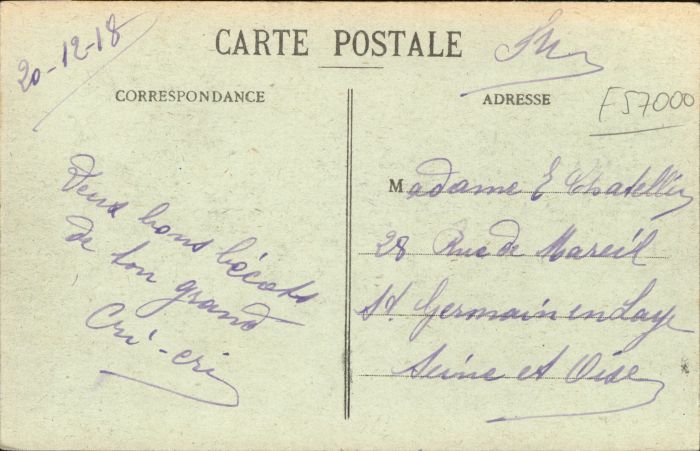 20-12-18
CARTE POSTALE
F.M.
CORRESPONDANCE
ADRESSE
F57000
Deux bons bécots
de ton grand
Cri-cri
Madame E Chatellier
28 Rue de Mareil
St. Germain en Laye
Seine et Oise